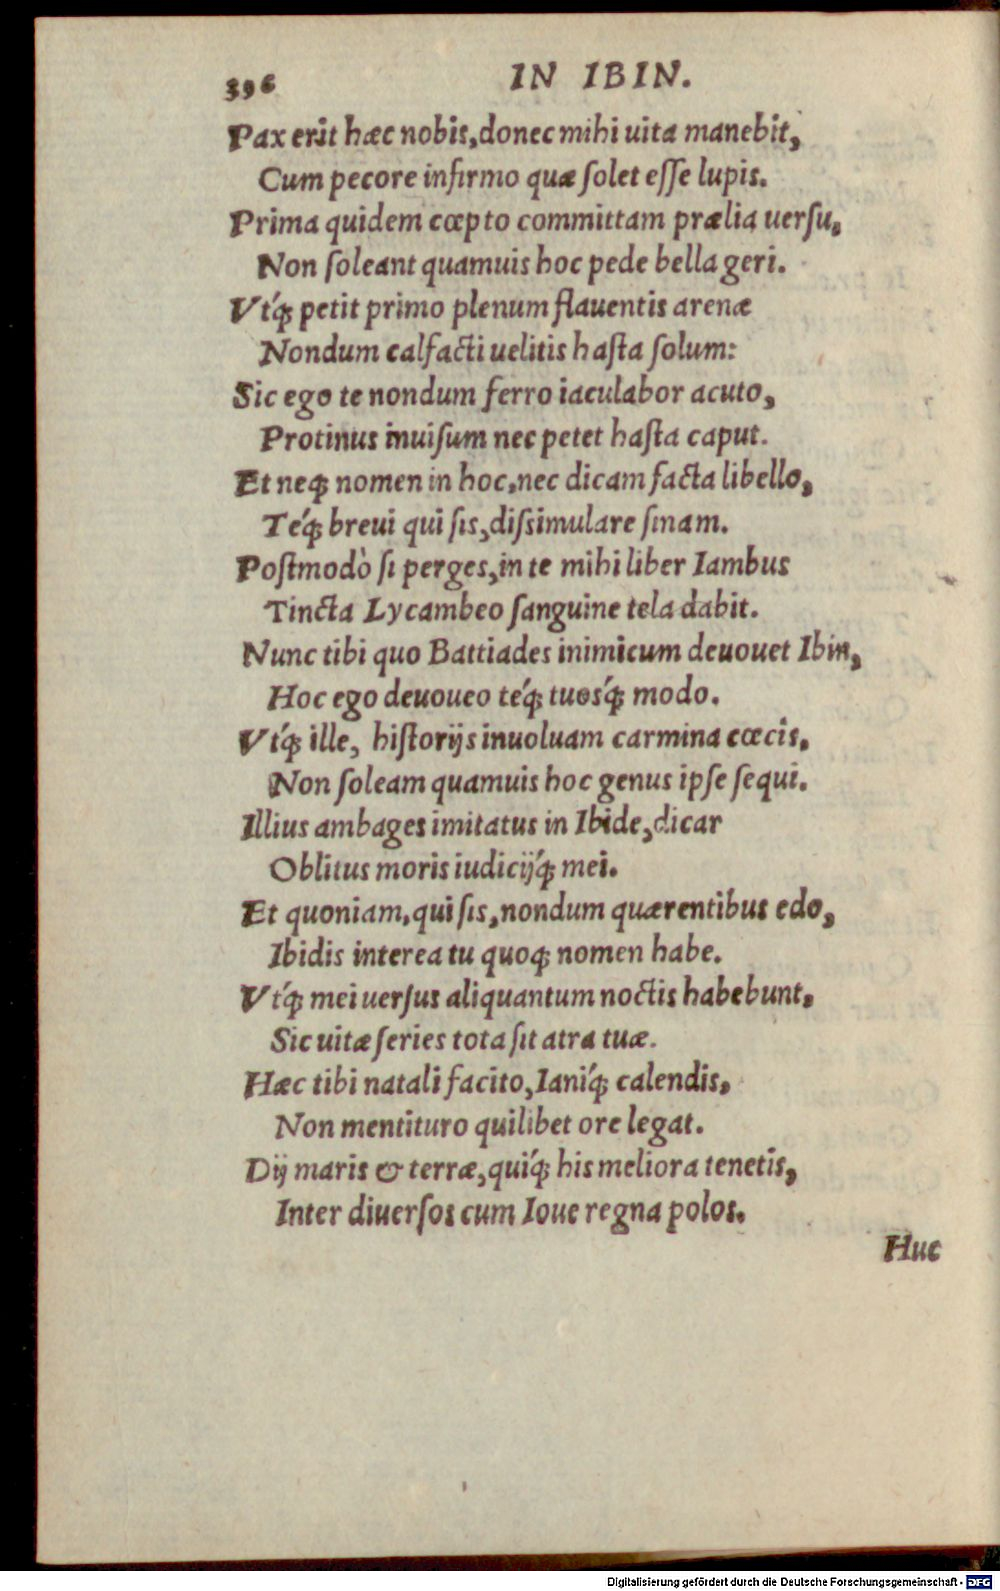 396 IN IBIN.
Pax erit hæc nobis, donec mihi uita manebit,
Cum pecore infirmo quæ ſolet eſſe lupis.
Prima quidem cœpto committam prælia uerſu,
Non ſoleant quamuis hoc pede bella geri.
Vtq́; petit primo plenum flauentis arenæ
Nondum calfacti uelitis haſta ſolum:
Sic ego te nondum ferro iaculabor acuto,
Protinus inuiſum nec petet haſta caput.
Et neq; nomen in hoc, nec dicam facta libello,
Teq́; breui qui ſis, diſsimulare ſinam.
Poſtmodò ſi perges, in te mihi liber Iambus
Tincta Lycambeo ſanguine tela dabit.
Nunc tibi quo Battiades inimicum deuouet Ibin,
Hoc ego deuoueo teq́; tuosq́; modo.
Vtq́; ille, hiſtorijs inuoluam carmina cœcis,
Non ſoleam quamuis hoc genus ipſe ſequi.
Illius ambages imitatus in Ibide, dicar
Oblitus moris iudicijq́; mei.
Et quoniam, qui ſis, nondum quærentibus edo,
Ibidis interea tu quoq; nomen habe.
Vtq́; mei uerſus aliquantum noctis habebunt,
Sic uitæ ſeries tota ſit atra tuæ.
Hæc tibi natali facito, Ianiq́; calendis,
Non mentituro quilibet ore legat.
Dij maris & terræ, quiq́; his meliora tenetis,
Inter diuerſos cum Ioue regna polos.
Huc
Digitalisierung gefördert durch die Deutsche Forschungsgemeinschaft - DFG